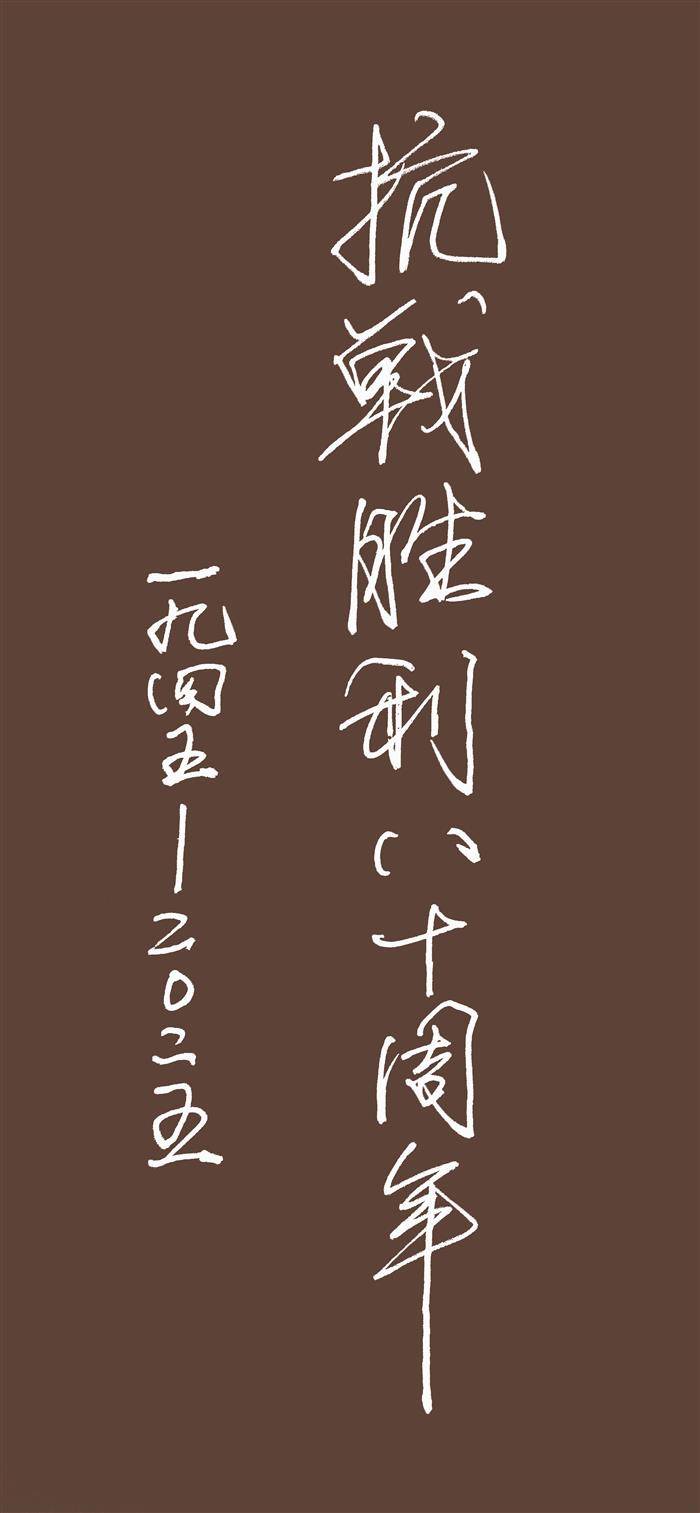 抗戦胜利八十周年
一九四五—二〇二五